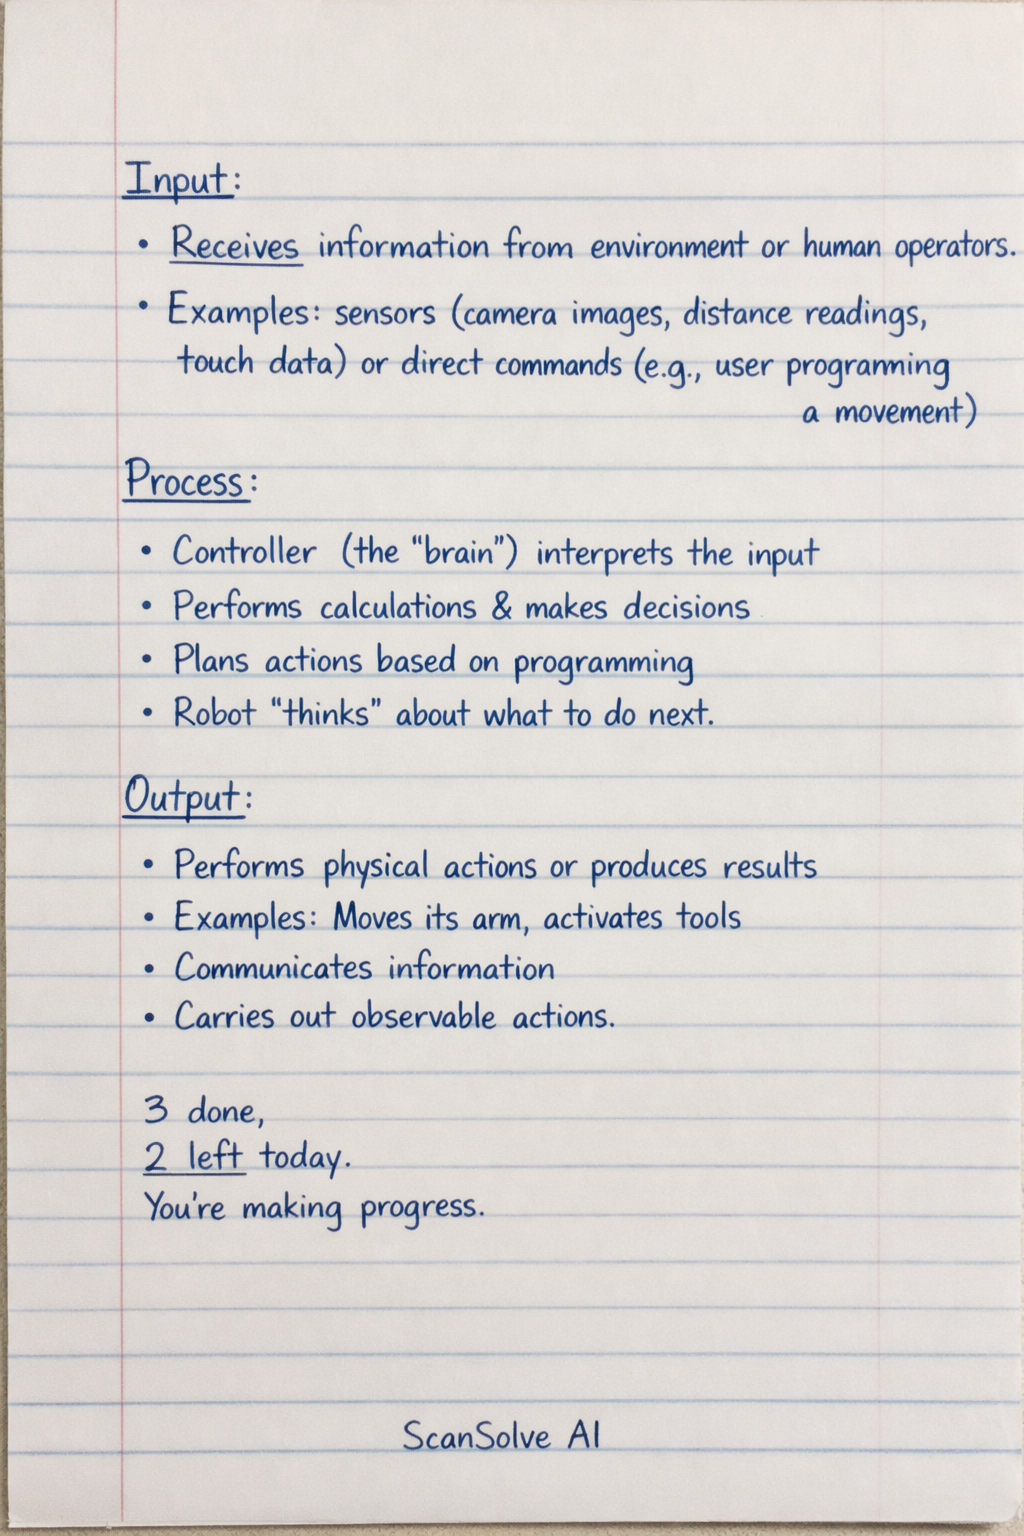 Input:
• Receives information from environment or human operators.
• Examples: sensors (camera images, distance readings,
touch data) or direct commands (e.g., user programming
a movement)
Process:
• Controller (the "brain") interprets the input
• Performs calculations & makes decisions
• Plans actions based on programming
• Robot "thinks" about what to do next.
Output:
• Performs physical actions or produces results
• Examples: Moves its arm, activates tools
• Communicates information
• Carries out observable actions.
3 done,
2 left today.
You're making progress.
ScanSolve AI